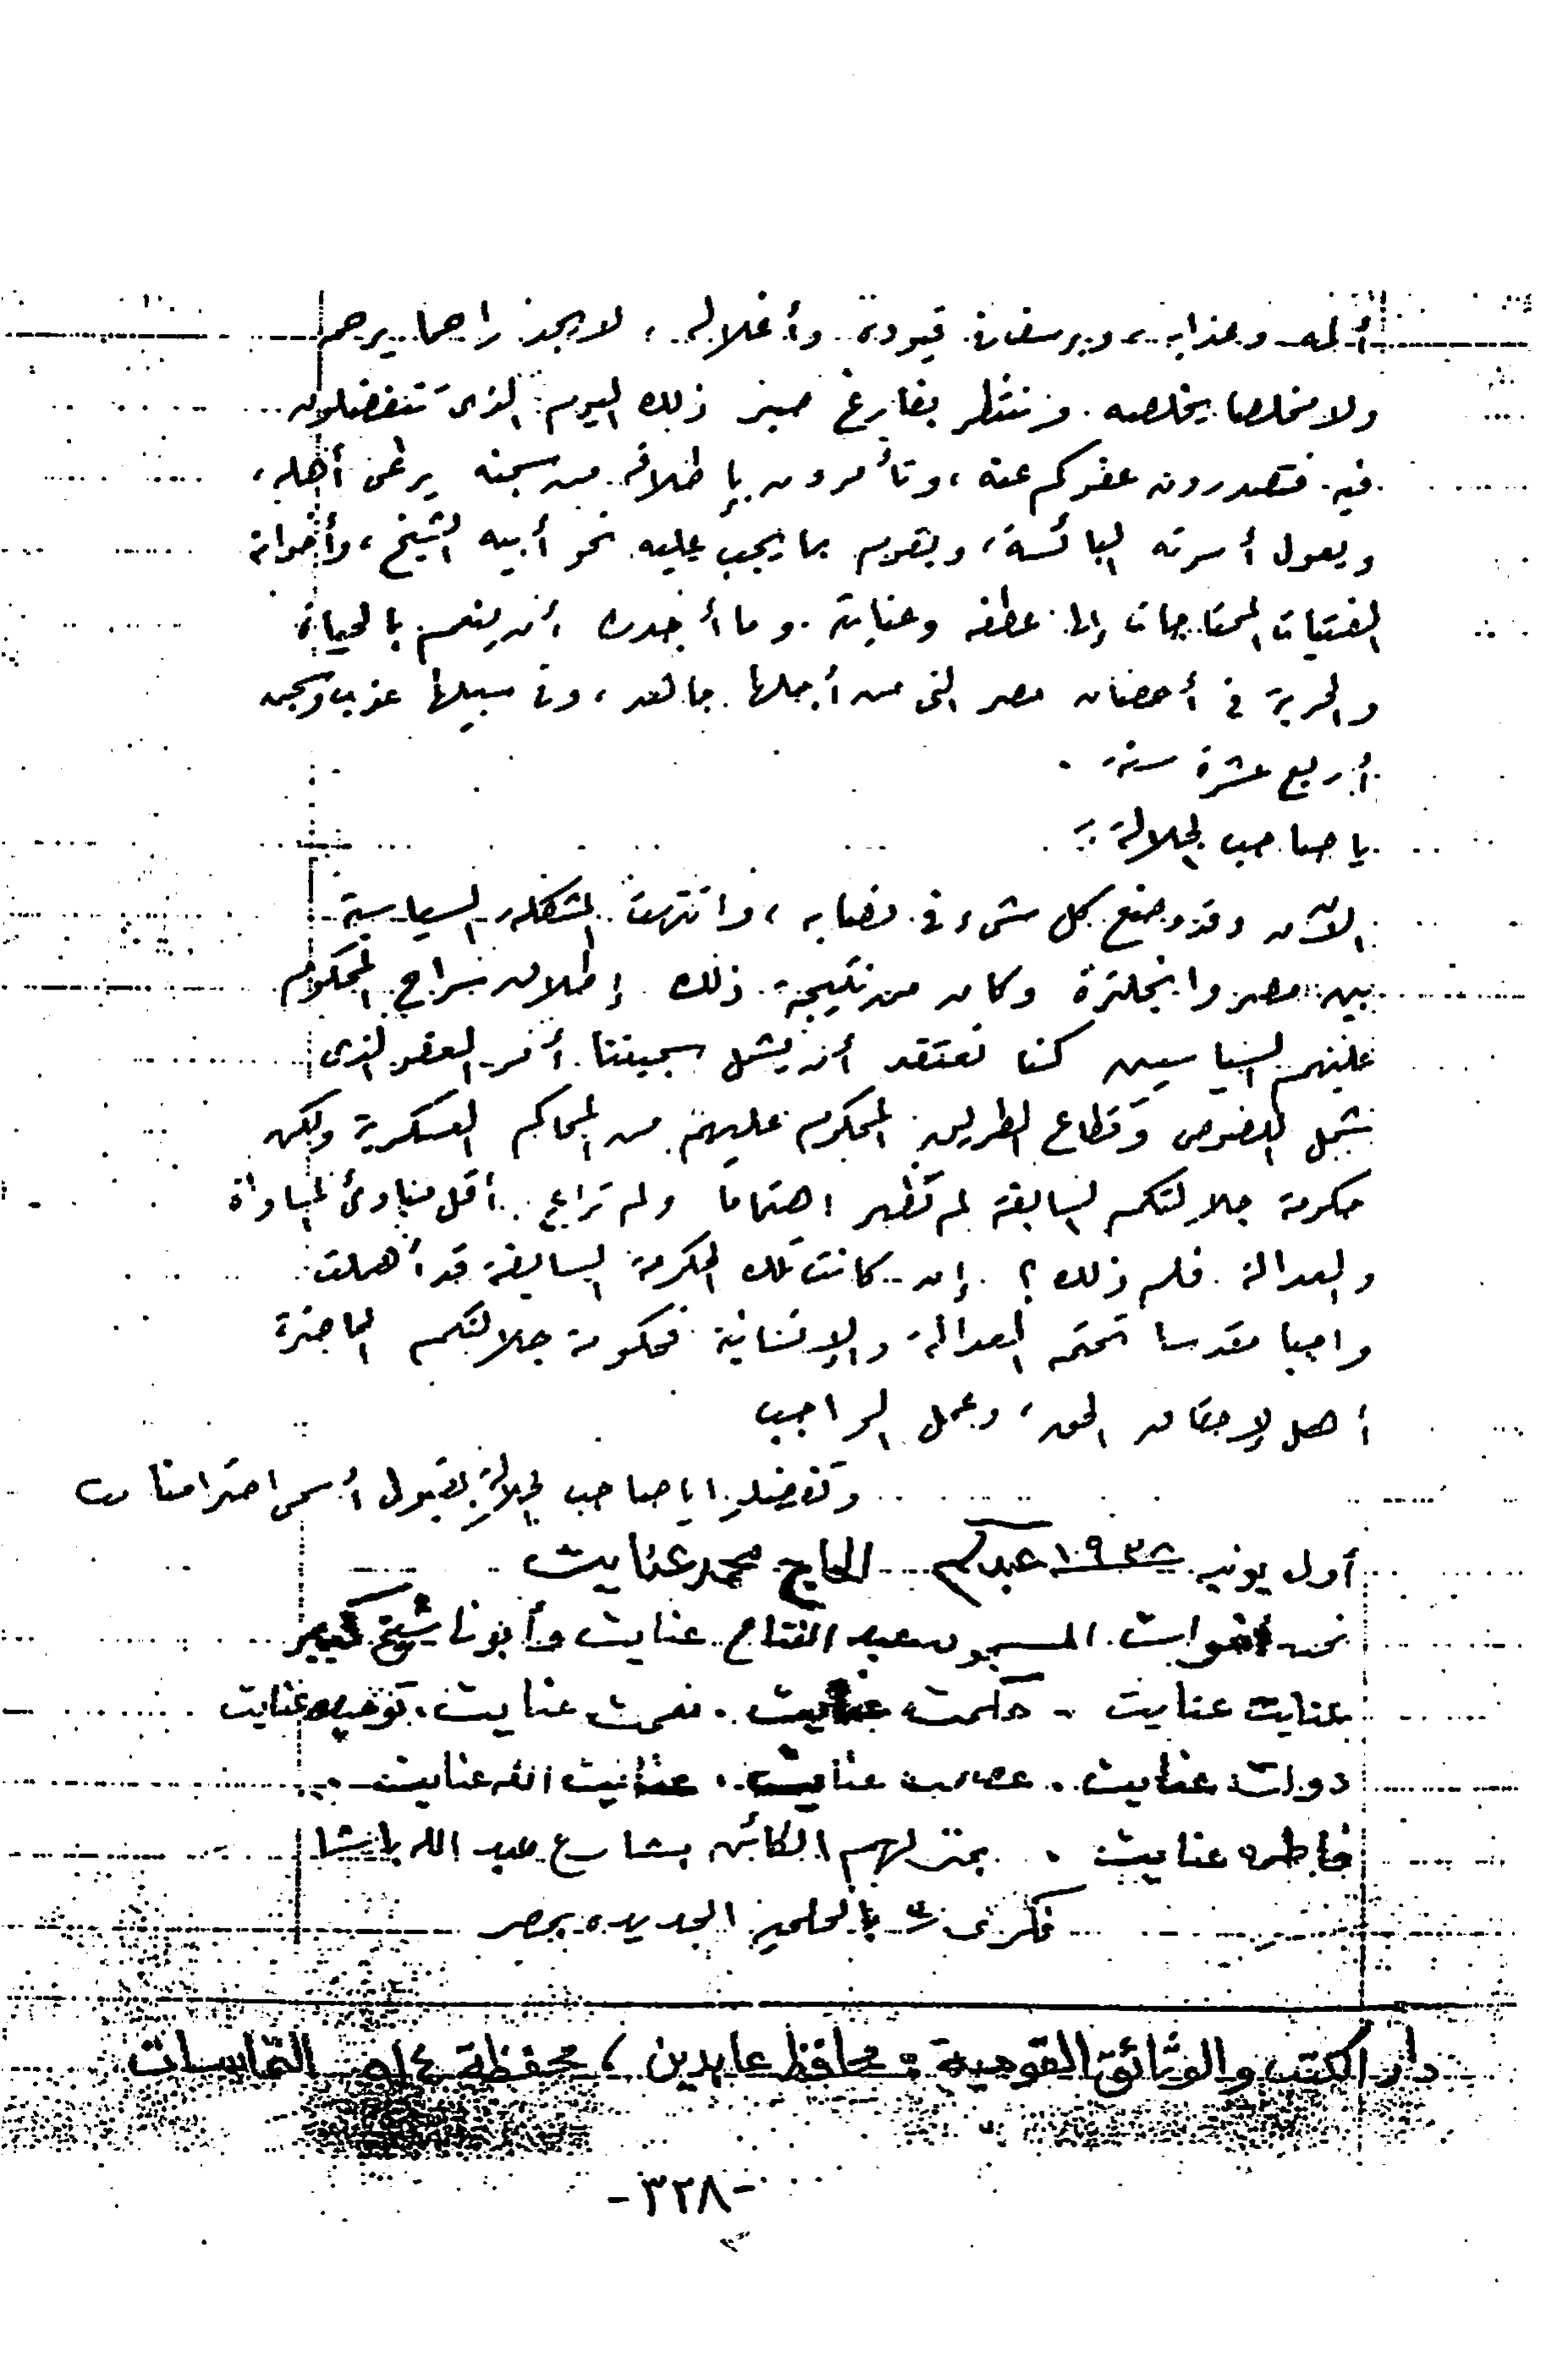 ألمه وعذابه، ويرسف في قيوده وأغلاله، لا يجد راحما يرحمه
ولا مخلصا يخلصه. وننتظر بفارغ صبر ذلك اليوم الذى تتفضلون
فيه فتصدرون عفوكم عنه، وتأمرون بإطلاقه من سجنه يرعى أهله،
ويعول أسرته البائسة، ويقوم بما يجب عليه نحو أبيه الشيخ، وأخواته
الفتيات المحتاجات إلى عطفه وعنايته. وما أجدره أن ينعم بالحياة
والحرية فى أحضان مصر التى من أجلها جاهد، وفى سبيلها عذب وسجن
أربع عشرة سنة.
يا صاحب الجلالة:
الآن وقد وضع كل شىء فى نصابه، وانتهت المشكلة السياسية
بين مصر وانجلترة وكان من نتيجة ذلك إطلاق سراح المحكوم
عليهم السياسيين كنا نعتقد أن يشمل سجيننا أمر العفو الذى
شمل اللصوص وقطاع الطريق المحكوم عليهم من المحاكم العسكرية ولكن
حكومة جلالتكم السابقة لم تظهر اهتماما ولم تراع أقل مبادئ المساواة
والعدالة. فلم ذلك؟ إن كانت تلك الحكومة السابقة قد أهملت
واجبا مقدسا تحتمه العدالة والإنسانية فحكومة جلالتكم الحاضرة
أهل لإحقاق الحق، وعمل الواجب
وتفضلوا يا صاحب الجلالة بقبول أسمى احترامنا
أول يونيه ١٩٣٨ عبدكم الحاج محمد عنايت
نحن أخوات المسجون عبد الفتاح عنايت وأبونا شيخ كبير
عنايت عنايت - حكمت عنايت. نعمت عنايت. توحيده عنايت
دولت عنايت. عصمت عنايت. عنايت الله عنايت.
فاطمه عنايت. بمنزلهم الكائن بشارع عبد الله باشا
فكرى بالحلمية الجديده بمصر
دار الكتب والوثائق القومية: محافظ عابدين، محفظة ٥١٤ التماسات
-٣٢٨-